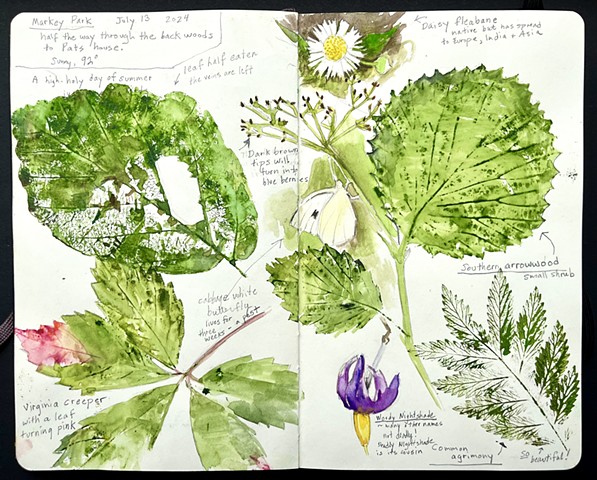 Markey Park July 13 2024
half the way through the back woods
to Pats' house.
Sunny, 92°
A high holy day of summer
leaf half eaten
the veins are left
Daisy fleabane
native but has spread
to Europe, India + Asia
Dark brown
tips will
turn into
blue berries
Southern arrowwood
small shrub
cabbage white
butterfly
lives for
three
weeks - a pest
Virginia creeper
with a leaf
turning pink
Woody Nightshade
- many other names
not deadly!
Deadly Nightshade
is its cousin
Common
agrimony
so
beautiful!